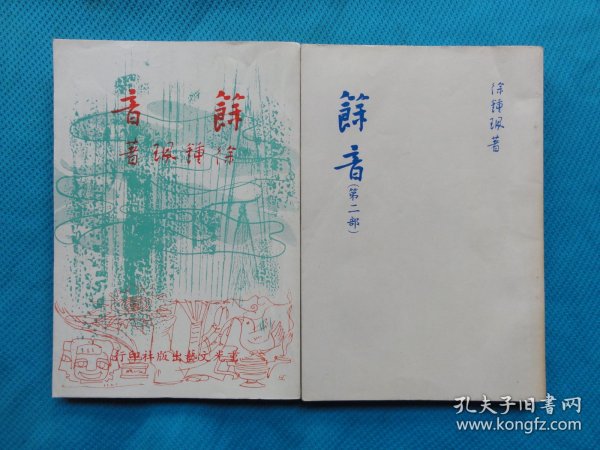 餘音
徐鍾珮著
重光文藝出版社印行
餘音
(第二部)
徐鍾珮著
孔夫子旧书网
www.kongfz.com